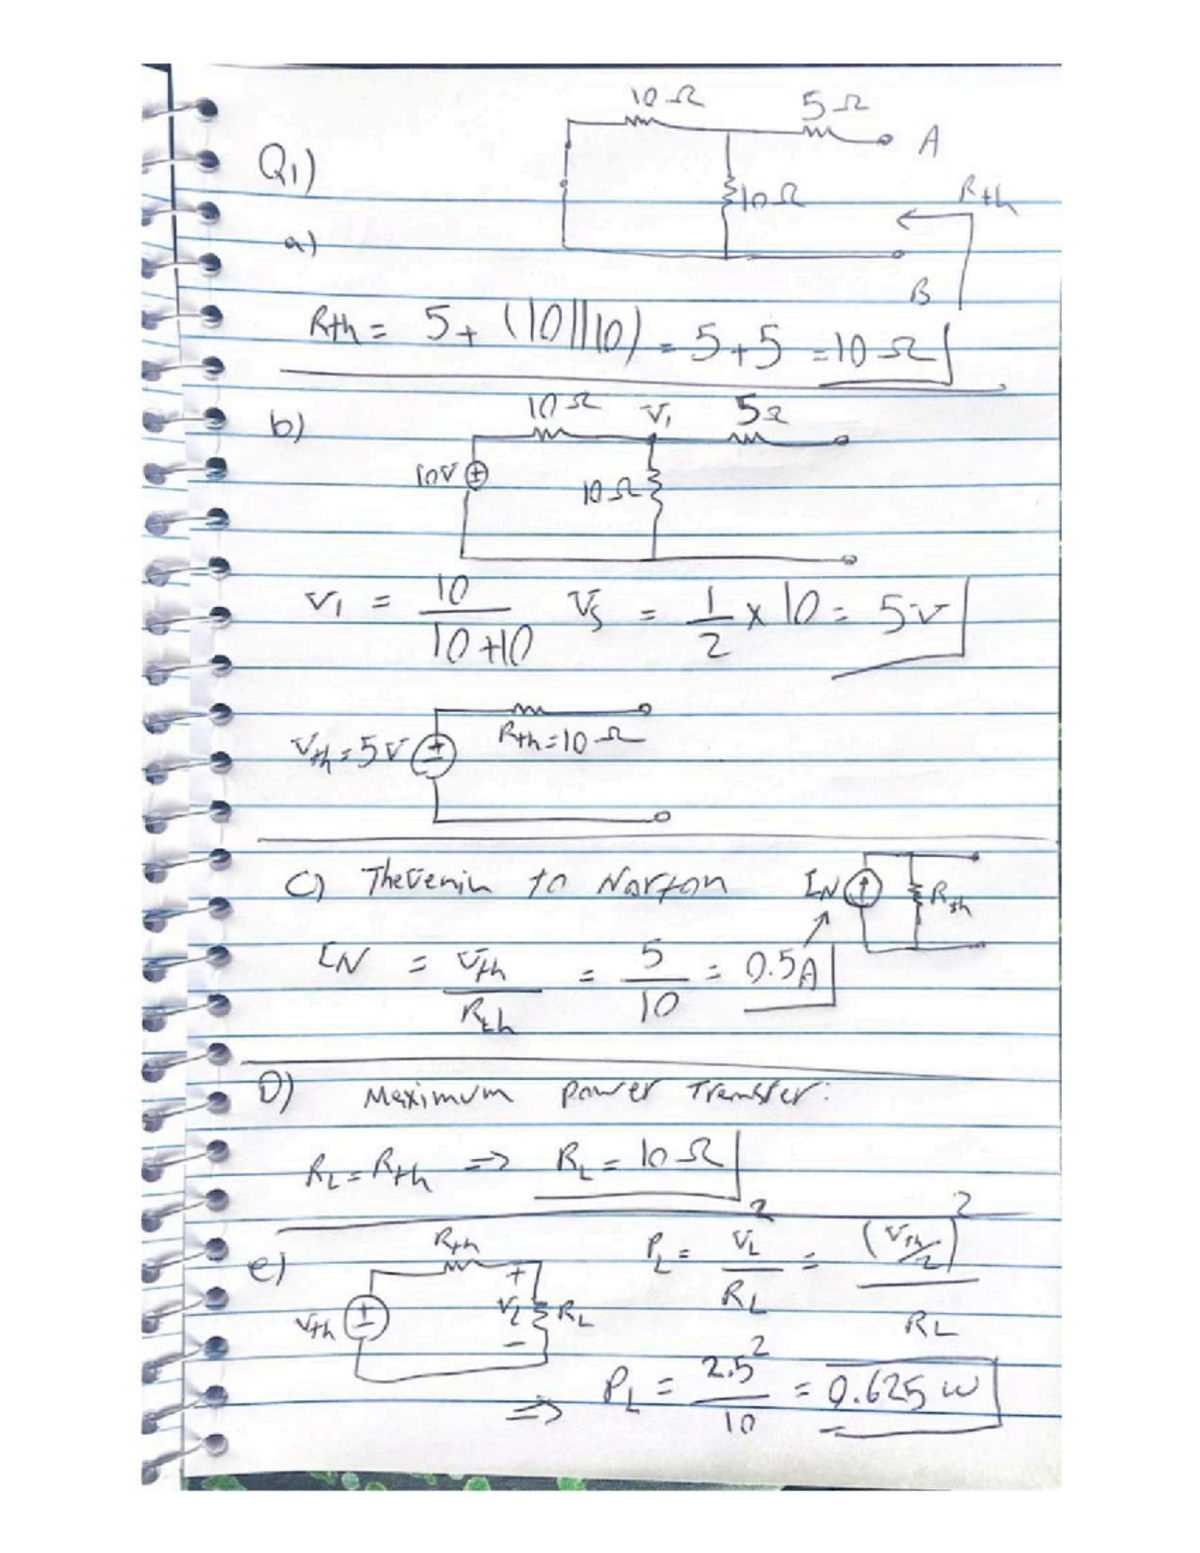 10 Ω 5 Ω
A
Q1)
10 Ω
Rth
a)
B
Rth = 5 + (10||10) = 5 + 5 = 10 Ω
b)
10 Ω V1 5Ω
10V
10 Ω
V1 = 10/10+10 Vs = 1/2 x 10 = 5V
Vth = 5V
Rth = 10 Ω
C) Thevenin to Norton
IN Rth
IN = Vth/Rth = 5/10 = 0.5A
D) Maximum power Transfer:
RL = Rth => RL = 10 Ω
e)
Rth
Vth + VL - RL
PL = VL²/RL = (Vth/2)²/RL
=> PL = 2.5²/10 = 0.625 W